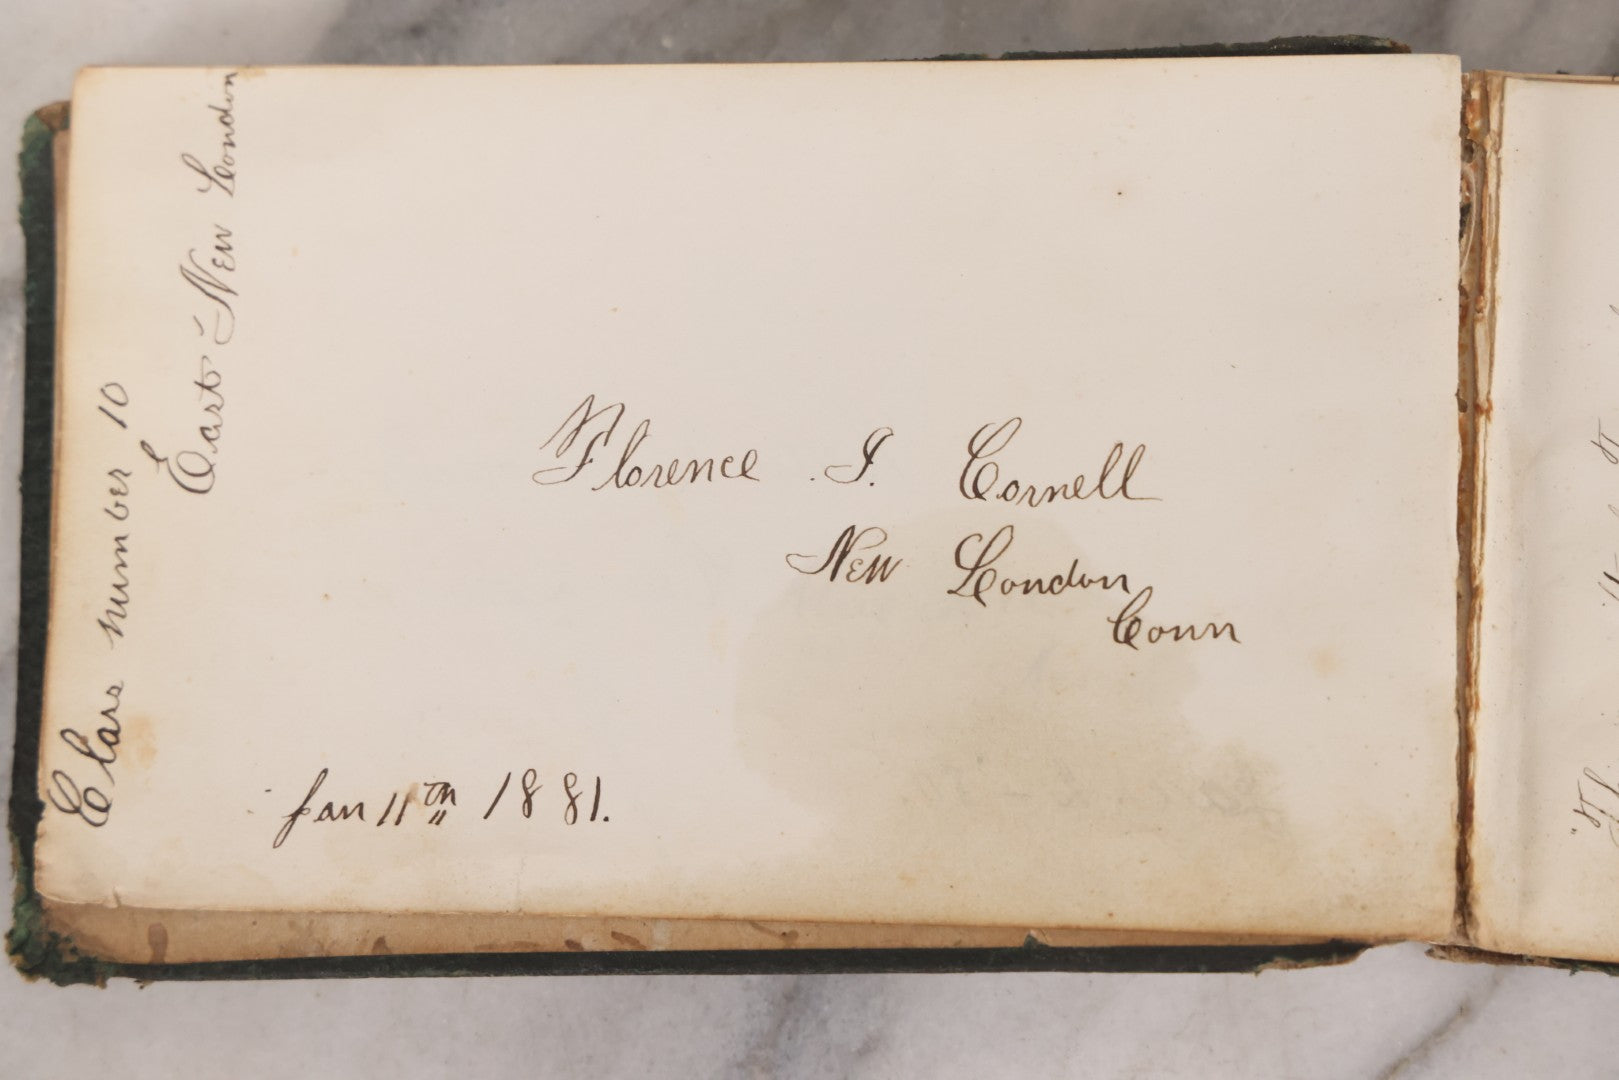 Florence . I. Cornell
New London
Conn
Jan 11th 1881.
Class number 10
East New London